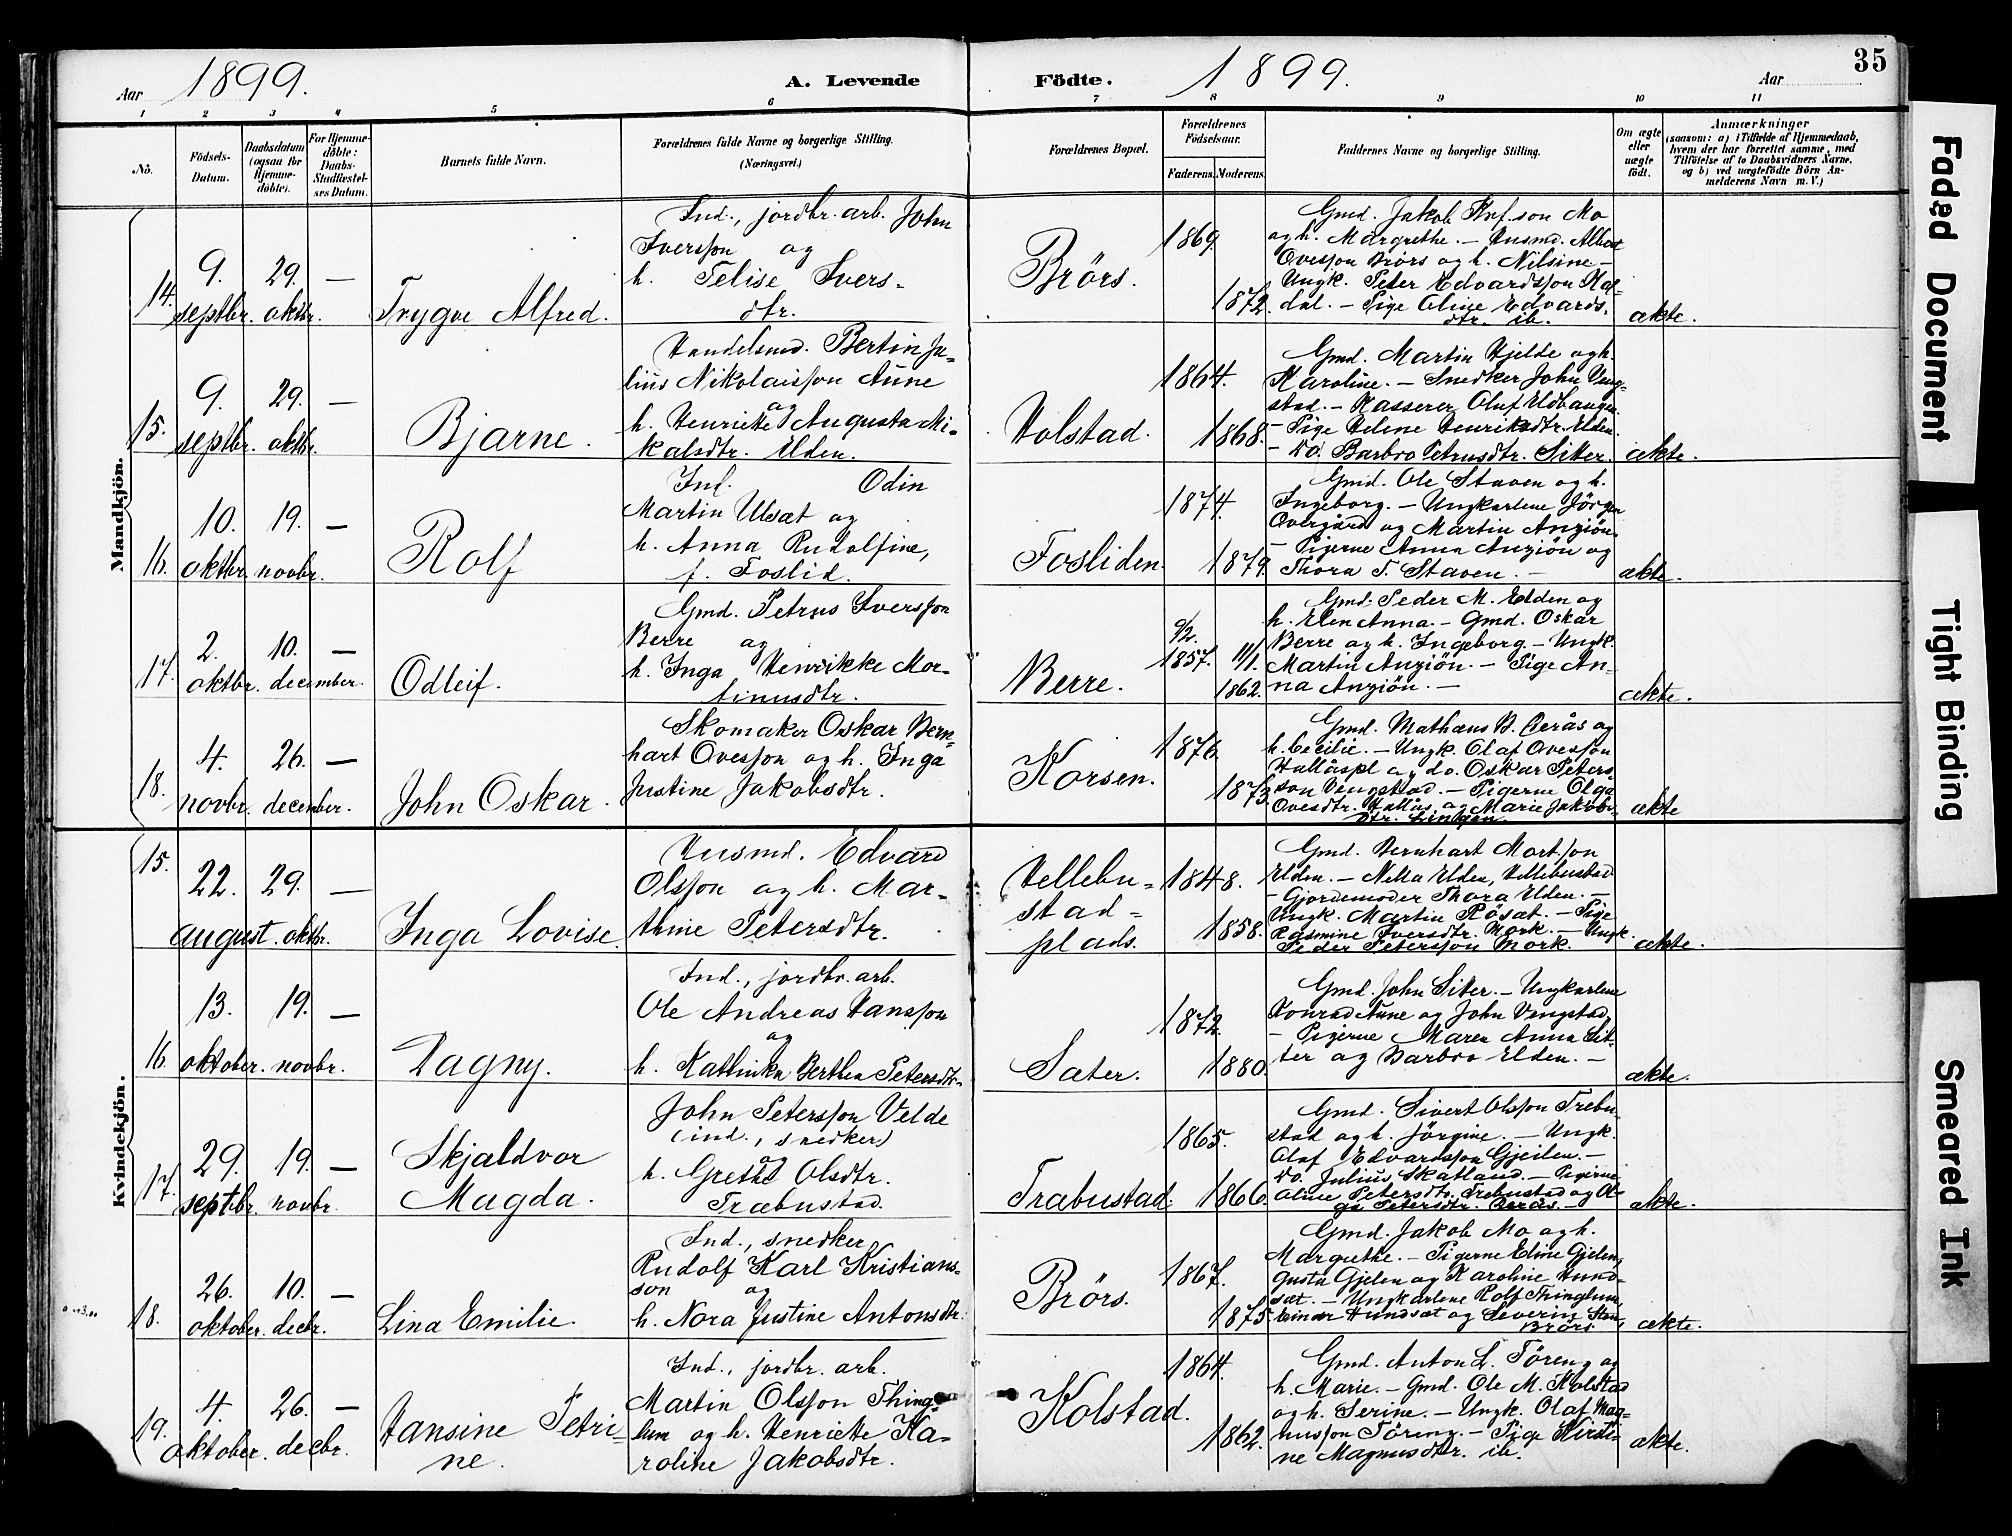 1899.
Aar
A. Levende
Födte.
1899.
Aar
35
1
2
3
4
5
6
7
8
9
10
11
No.
Födsels-
Datum.
Daabsdatum
(ogsaa for
Hjemme-
döbte).
For Hjemme-
döbte:
Daabs-
Stadfæstel-
ses Datum.
Barnets fulde Navn.
Forældrenes fulde Navne og borgerlige Stilling.
(Næringsvei.)
Forældrenes Bopæl.
Forældrenes
Födselsaar.
Faderens.
Moderens.
Faddernes Navne og borgerlige Stilling.
Om ægte
eller
uægte
födt.
Anmærkninger
(saasom: a) i Tilfælde af Hjemmedaab,
hvem der har forrettet samme, med
Tilföielse af to Daabsvidners Navne,
og b) ved uægtefödte Börn An-
melderens Navn m. V.)
Mandkjön.
14.
9.
septbr.
29.
oktbr.
—
Trygve Alfred.
Ind., jordbr. arb. John
Iversson og
h. Felise Ivers-
dtr.
Brörs.
1869.
1872.
Gmd. Jakob son Mo
og h. Margrethe. — Husmd. Albert
Ovesson Brörs og h. Nilsine —
Ungk. Peter Edvardsson Hal-
dal. — Pige Oline Edvards-
dtr. ib.
ækte.
15.
9.
septbr.
29.
oktbr.
—
Bjarne.
Handelsmd. Bertin Ju-
lius Nikolaisson Aune
og
h. Henriette Augusta Mi-
kalsdtr. Elden.
Holstad.
1864.
1868.
Gmd. Martin Hjelde og h.
Karoline. — Snedker John Veng-
stad. — Kasserer Oluf Eldbanger
— Pige Helene Henriksdtr. Elden.
— do. Barbro Petrusdtr. Sitter.
ækte.
16.
10.
oktbr.
19.
novbr.
—
Rolf
Ind. Odin
Martin Ulsæt og
h. Anna Rudolfine,
f. Foslid.
Fosliden.
1874.
1879.
Gmd. Ole Staven og h.
Ingeborg. — Ungkarlene Jörgen
Overgård og Martin Anziön.
— Pigerne Anna Anziön og
Thora T. Staven. —
ækte.
17.
2.
oktbr.
10.
december.
—
Odleif.
Gmd. Petrus Iversson
Berre og
h. Inga Henrikke Mor-
tinusdtr.
Berre.
9/2.
1857.
11/1.
1862.
Gmd. Peder M. Elden og
h. Elen Anna. — Gmd. Oskar
Berre og h. Ingeborg. — Ungk.
Martin Anziön. — Pige An-
na Anziön. —
ækte.
18.
4.
novbr.
26.
december.
—
John Oskar.
Skomaker Oskar Bern-
hart Ovesson og h. Inga
Justine Jakobsdtr.
Korsen.
1876.
1873.
Gmd. Mathæus B. Aerås og
h. Cecilie. — Ungk. Olaf Ovesson
Hallåspl og do. Oskar Peters-
son Vengstad. — Pigerne Olga
Ovesdtr. Hallås og Marie Jakobs-
dtr.
ækte
Kvindekjön.
15.
22.
august.
29.
oktbr.
—
Inga Lovise.
Husmd. Edvard
Olsson og h. Mar-
thine Petersdtr.
Hellebu-
stad-
plads.
1848.
1858.
Gmd. Bernhart Mortsson
Elden. — Nella Elden, Hellebustad
— Gjordemoder Thora Elden. —
Ungk. Martin Rösæt. — Pige
Rasmine Iversdtr. Mork. — Ungk.
Peder Petersson Mork.
ækte.
16.
13.
oktober.
19.
novbr.
—
Dagny.
Ind., jordbr. arb.
Ole Andreas Hansson
og
h. Kathinka Berthea Petersdtr.
Sæter.
1872.
1880.
Gmd. John Siter. — Ungkarlene
Konrad Aune og John Vengstad
— Pigerne Maren Anna Sit-
ter og Barbro Elden. —
ækte.
17.
29.
septbr.
19.
novbr.
—
Skjaldvor
Magda.
John Petersson Velde
(ind., snedker)
og
h. Grethe Olsdtr.
Træbustad.
Træbustad.
1865.
1866.
Gmd. Sivert Olsson Træbu-
stad og h. Jörgine. — Ungk.
Olaf Edvardsson Gjeilen. —
do. Julius Skatland. — Pigerne
Oline Petersdtr. Træbustad og Ol-
ga Petersdtr. Aerås. —
ækte.
18.
26.
oktober.
10.
decbr.
—
Lina Emilie.
Ind., snedker
Rudolf Karl Kristians-
son og
h. Nora Justine Antonsdtr.
Brörs.
1867.
1875.
Gmd. Jakob Mo og h.
Margrethe. — Pigerne Eline Gjelen,
Gusta Gjelen og Karoline Hund-
sæt. — Ungkarlene Rolf Thinglum,
Einar Hundsæt og Severin Sten,
Brörs
ækte.
19.
4.
oktober.
26.
decbr.
—
Hansine Petri-
ne.
Ind., jordbr. arb.
Martin Olsson Thing-
lum og h. Henriette Ka-
roline Jakobsdtr.
Kolstad.
1864.
1862.
Gmd. Anton L. Töreng og
h. Marie. — Gmd. Ole M. Kolstad
og h. Serine. — Ungk. Olaf Mag-
nusson Töreng. — Pige Kirsti-
ne Magnusdtr. ib.
ækte.
Faded Document
Tight Binding
Smeared Ink